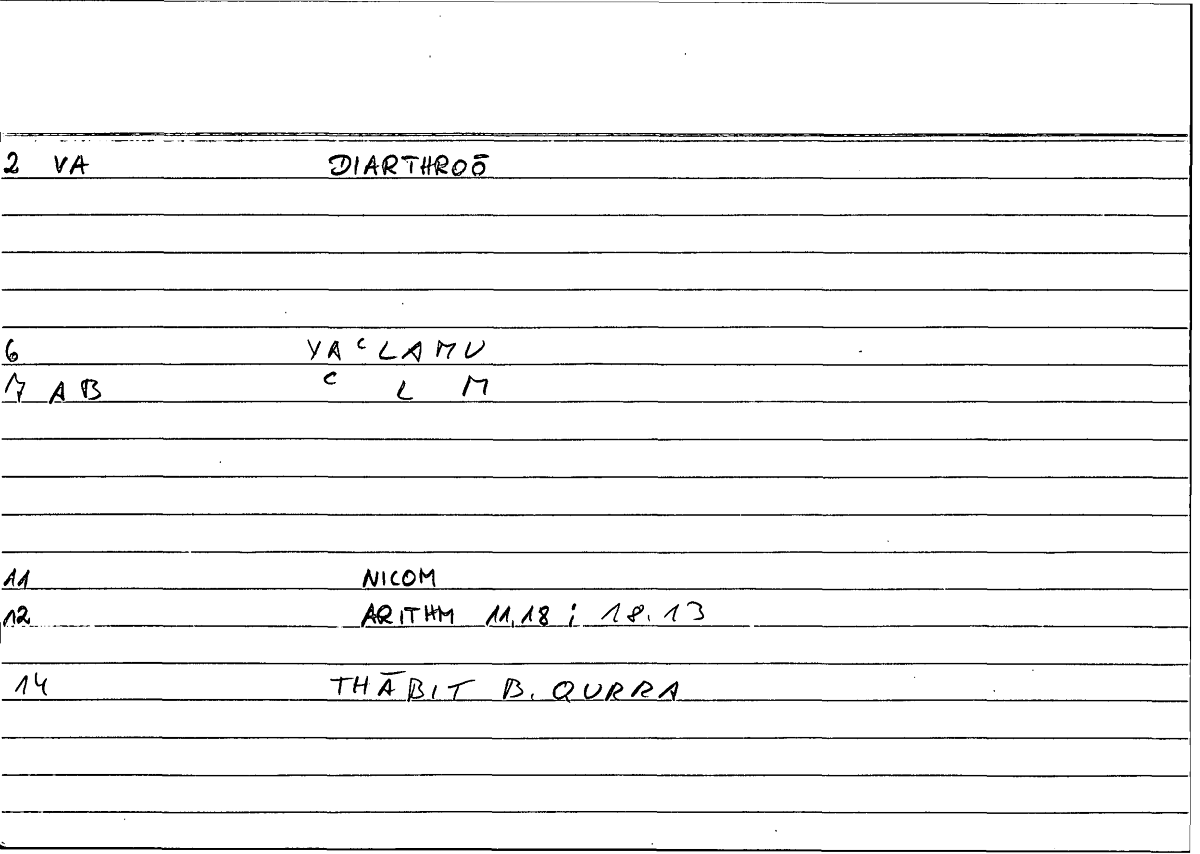 2 VA DIARTHROŌ
6 YAᶜLAMU
7 AB ᶜ L M
11 NICOM
12 ARITHM 11,18 ; 18.13
14 THĀBIT B. QURRA